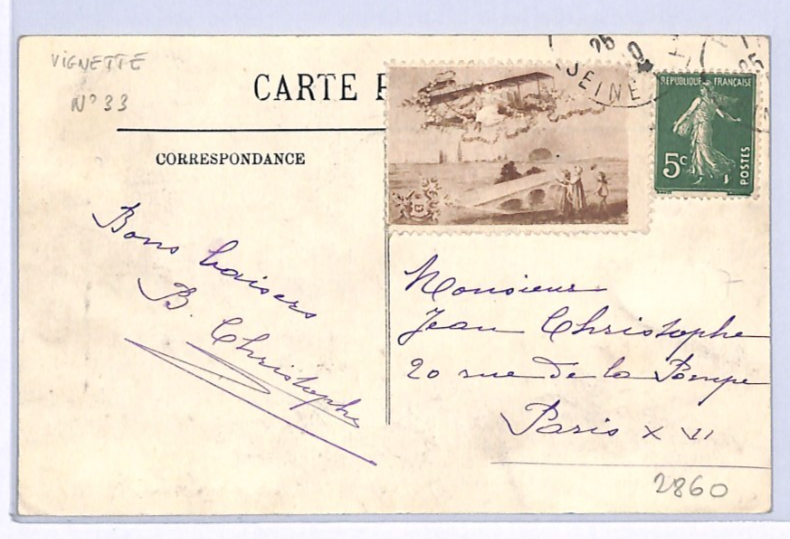 VIGNETTE
N° 33
CARTE P
CORRESPONDANCE
25
SEINE
25
REPUBLIQUE FRANÇAISE
5c
POSTES
Bons baisers
B. Christophe
Monsieur
Jean Christophe
20 rue de la Pompe
Paris XVI
2860